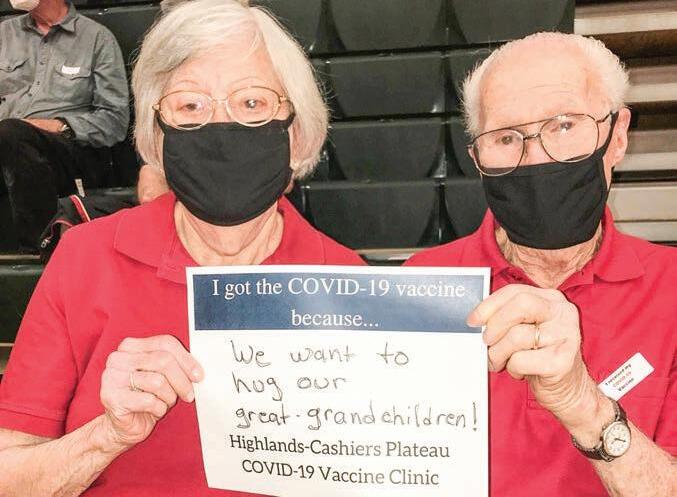 I got the COVID-19 vaccine
because...
We want to
hug our
great-grandchildren!
Highlands-Cashiers Plateau
COVID-19 Vaccine Clinic
I received my
COVID-19
Vaccine